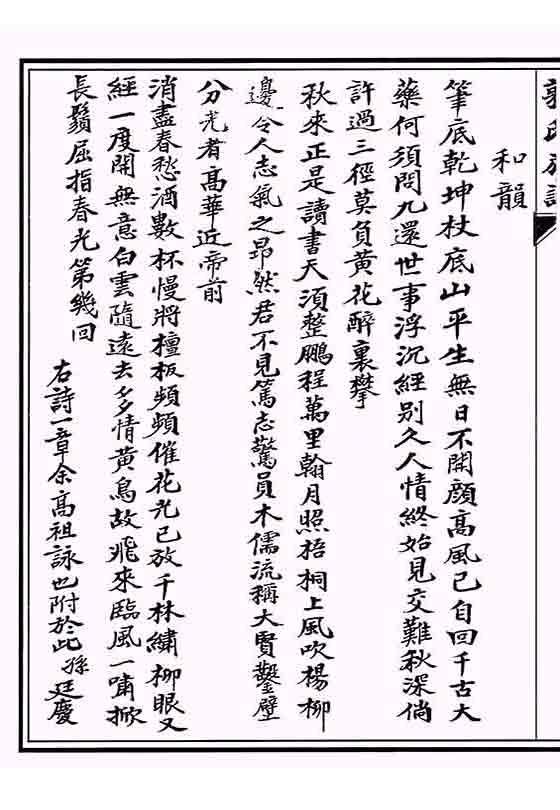 和韻
筆底乾坤杖底山平生無日不開顏高風已自回千古大
藥何須問九還世事浮沉經別久人情終始見交難秋深倘
許過三徑莫負黃花醉裏攀
秋來正是讀書天須整鵬程萬里翰月照梧桐上風吹楊柳
邊令人志氣之昂然君不見篤志驚員木儒流稱大賢鑿壁
分光者高華近帝前
消盡春愁酒數杯慢將檀板頻頻催花光已放千林繡柳眼又
經一度開無意白雲隨遠去多情黃鳥故飛來臨風一嘯掀
長鬚屈指春光第幾回
右詩一章余高祖詠也附於此孫廷慶